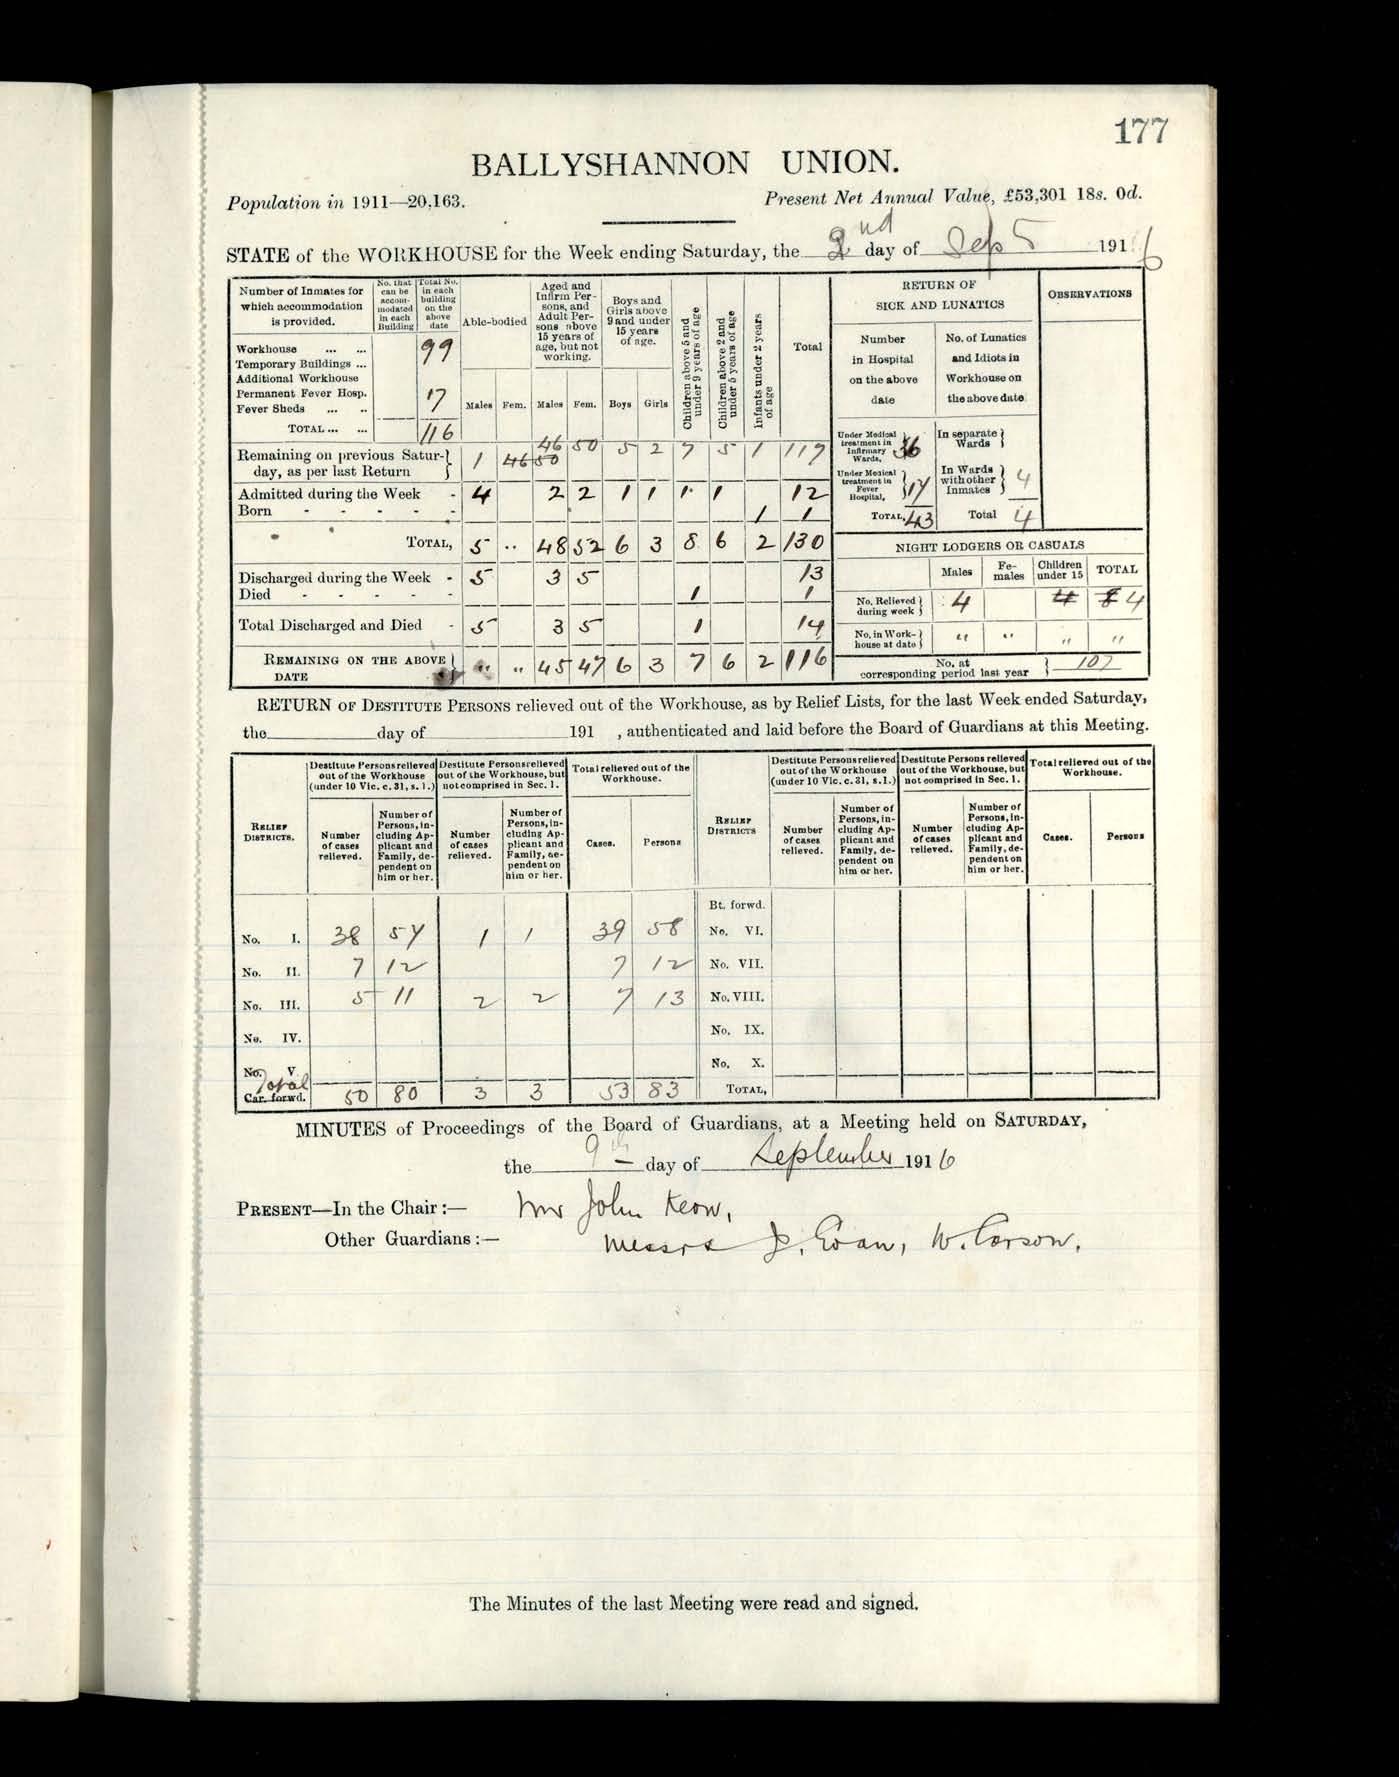 177
BALLYSHANNON UNION.
Population in 1911—20,163. Present Net Annual Value, £53,301 18s. 0d.
STATE of the WORKHOUSE for the Week ending Saturday, the 2nd day of Sept 1916
Number of Inmates for which accommodation is provided.
No. that can be accommodated in each Building
Total No. in each building on the above date
Able-bodied
Aged and Infirm Persons, and Adult Persons above 15 years of age, but not working.
Boys and Girls above 9 and under 15 years of age.
Children above 5 and under 9 years of age
Children above 2 and under 5 years of age
Infants under 2 years of age
Total
Males Fem. Males Fem. Boys Girls
Workhouse ... ... 99
Temporary Buildings ...
Additional Workhouse
Permanent Fever Hosp. 17
Fever Sheds ... ..
TOTAL ... ... 116
Remaining on previous Saturday, as per last Return 1 46 50 46 50 5 2 7 5 1 117
Admitted during the Week - 4 2 2 1 1 1 1 12
Born - - - - - 1 1
TOTAL, 5 .. 48 52 6 3 8 6 2 130
Discharged during the Week - 5 3 5 13
Died - - - - - 1 1
Total Discharged and Died - 5 3 5 1 14
REMAINING ON THE ABOVE DATE " " 45 47 6 3 7 6 2 116
RETURN OF SICK AND LUNATICS
OBSERVATIONS
Number in Hospital on the above date
No. of Lunatics and Idiots in Workhouse on the above date
Under Medical treatment in Infirmary Wards, 36
In separate Wards
Under Medical treatment in Fever Hospital, 17
In Wards with other Inmates 4
TOTAL, 43 Total 4
NIGHT LODGERS OR CASUALS
Males Females Children under 15 TOTAL
No. Relieved during week 4 4 8 4
No. in Workhouse at date " " " "
No. at corresponding period last year 107
RETURN OF DESTITUTE PERSONS relieved out of the Workhouse, as by Relief Lists, for the last Week ended Saturday,
the day of 191 , authenticated and laid before the Board of Guardians at this Meeting.
RELIEF DISTRICTS.
Destitute Persons relieved out of the Workhouse (under 10 Vic. c. 31, s. 1.)
Destitute Persons relieved out of the Workhouse, but not comprised in Sec. 1.
Total relieved out of the Workhouse.
RELIEF DISTRICTS
Destitute Persons relieved out of the Workhouse (under 10 Vic. c. 31, s. 1.)
Destitute Persons relieved out of the Workhouse, but not comprised in Sec. 1.
Total relieved out of the Workhouse.
Number of cases relieved.
Number of Persons, including Applicant and Family, dependent on him or her.
Number of cases relieved.
Number of Persons, including Applicant and Family, dependent on him or her.
Cases.
Persons
Number of cases relieved.
Number of Persons, including Applicant and Family, dependent on him or her.
Number of cases relieved.
Number of Persons, including Applicant and Family, dependent on him or her.
Cases.
Persons
Bt. forwd.
No. I. 38 57 1 1 39 58 No. VI.
No. II. 7 12 7 12 No. VII.
No. III. 5 11 2 2 7 13 No. VIII.
No. IV. No. IX.
No. V. No. X.
Total
Car. forwd. 50 80 3 3 53 83 TOTAL,
MINUTES of Proceedings of the Board of Guardians, at a Meeting held on SATURDAY,
the 9th day of September 1916
PRESENT—In the Chair :— Mr John Keon,
Other Guardians :— Messrs W. Carson.
The Minutes of the last Meeting were read and signed.